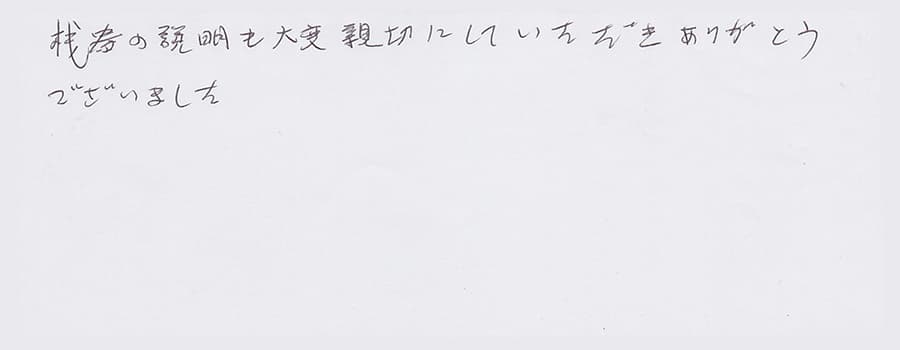 機器の説明も大変親切にしていただきありがとう
ございました